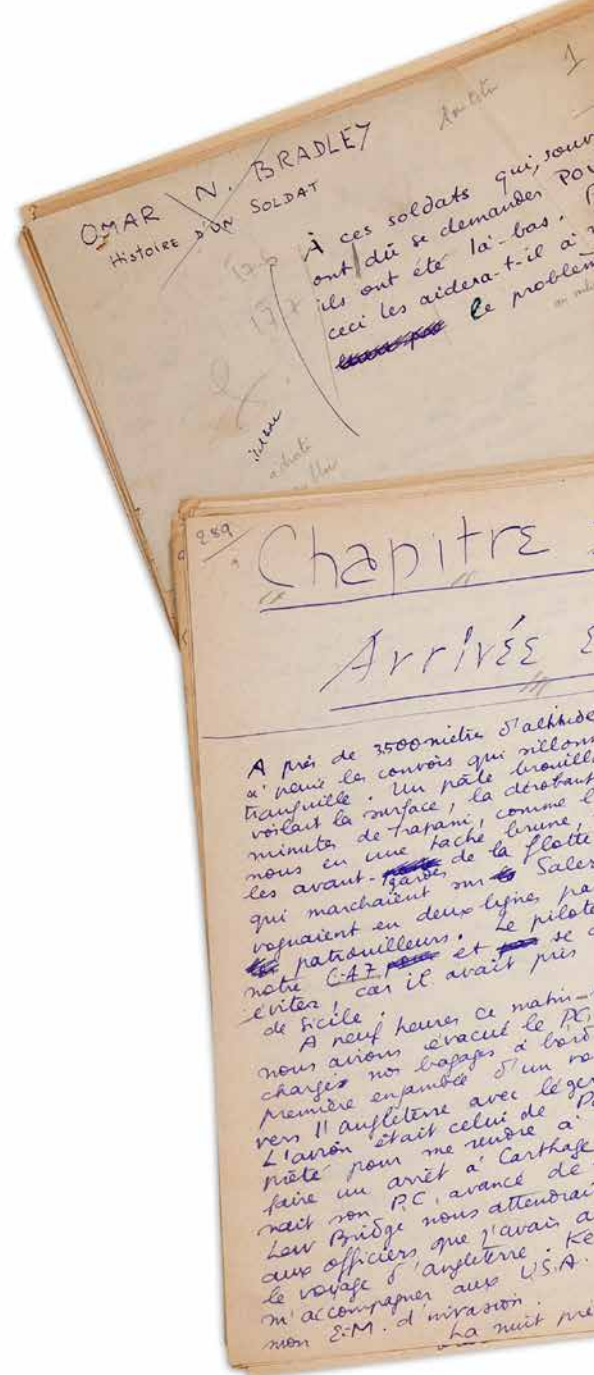 1
OMAR N. BRADLEY
HISTOIRE D'UN SOLDAT
À ces soldats qui, souv
ont dû se demander POU
ils ont été là-bas. P
ceci les aidera-t-il à
le problèm
289
Chapitre
Arrivée
A près de 3500 mètre d'altitude
à peine les convois qui sillons
tranquille. Un pâle brouilla
voilait la surface, la dérobant
minutes de Trapani, comme l
nous en une tache brune,
les avant-gardes de la flotte
qui marchaient sur Saler
voguaient en deux lignes pa
patrouilleurs. Le pilote
notre C-47 et se
éviter, car il avait pris
de Sicile.
A neuf heures ce matin-
nous avions évacué le PC,
chargés nos bagages à bord
première enjambée d'un vo
vers l'angleterre avec léger
L'avion était celui de Pa
prêté pour me rendre à
faire un arrêt à Carthage
nait son P.C. avancé de
Lew Bridge nous attendrai
aux officiers que j'avais a
le voyage d'angleterre. Ke
m'accompagner aux U.S.A.
mon E-M. d'invasion.
La nuit pré